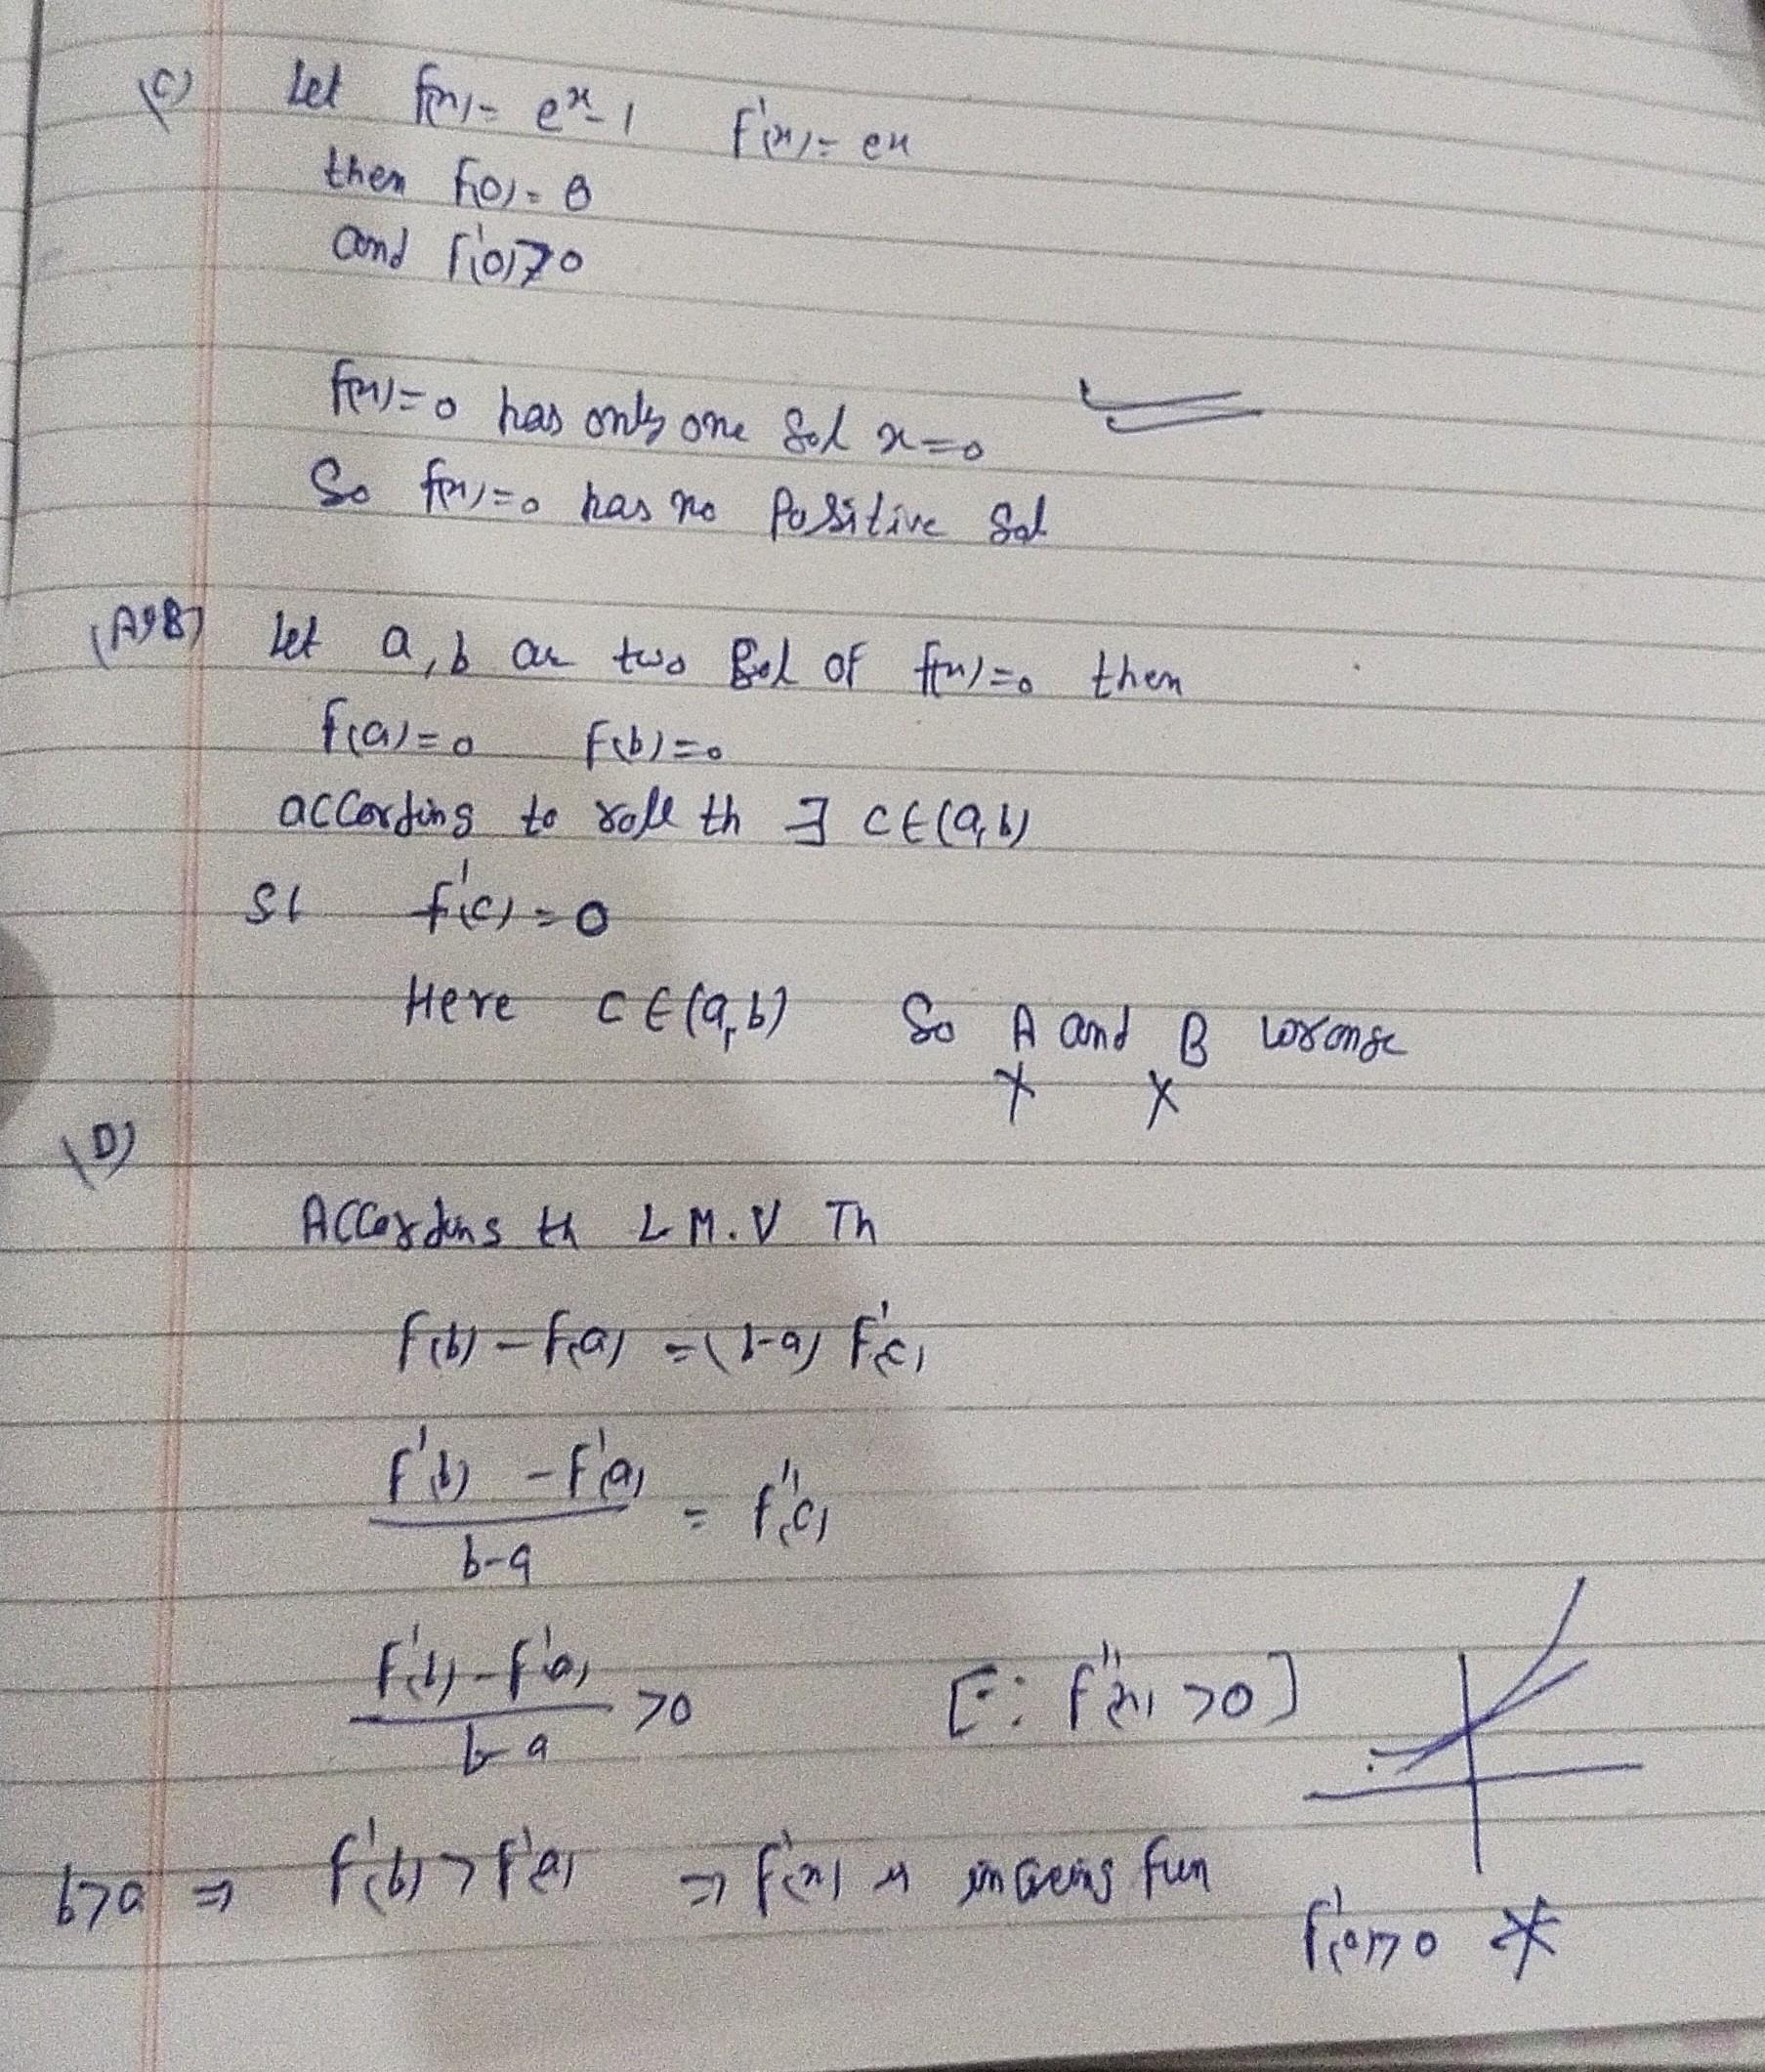 (C) Let f(x)= e^x-1 f'(x)= ex
then f(0)= 0
and f'(0)>0
f(x)=0 has only one Sol x=0
So f(x)=0 has no Positive Sol
(A&B) Let a, b are two Sol of f(x)=0 then
f(a)=0 f(b)=0
according to roll th ∃ c∈(a,b)
St f'(c)=0
Here c∈(a,b) So A and B wronge
X X
(D)
According th L M.V Th
f(b)-f(a) =(b-a) f'(c)
f'(b) - f'(a) / b-a = f''(c)
f'(b)-f'(a) / b-a >0 [∵ f''(x) >0]
b>a ⇒ f'(b) > f'(a) ⇒ f'(x) is fun
f'(0)>0